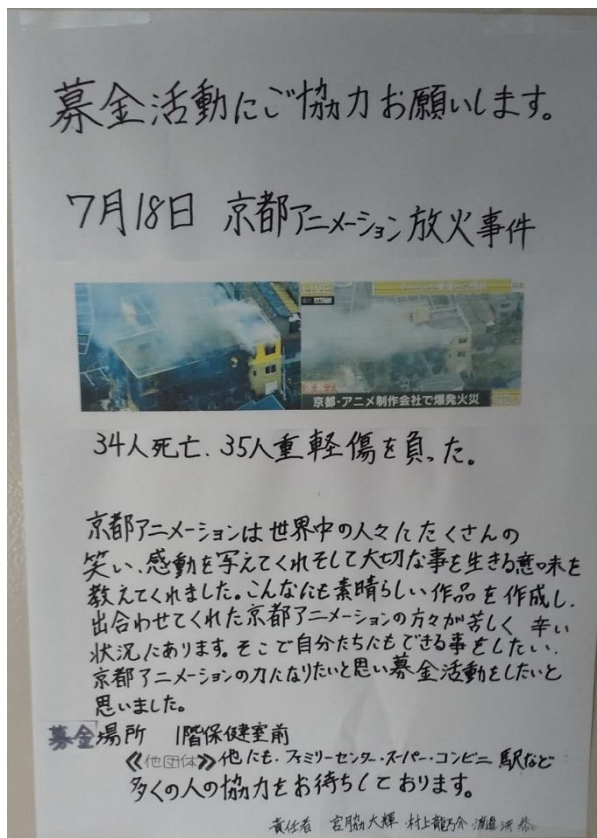 募金活動にご協力お願いします。
7月18日 京都アニメーション放火事件
京都・アニメ制作会社で爆発火災
34人死亡、35人重軽傷を負った。
京都アニメーションは世界中の人々にたくさんの
笑い、感動を写えてくれそして大切な事を生きる意味を
教えてくれました。こんなにも素晴らしい作品を作成し、
出合わせてくれた京都アニメーションの方々が苦しく 辛い
状況にあります。そこで自分たちにもできる事をしたい、
京都アニメーションの力になりたいと思い募金活動をしたいと
思いました。
募金場所 1階保健室前
《他団体》他にも、ファミリーセンター・スーパー・コンビニ 駅など
多くの人の協力をお待ちしております。
責任者 宮脇大輝 村上龍乃介